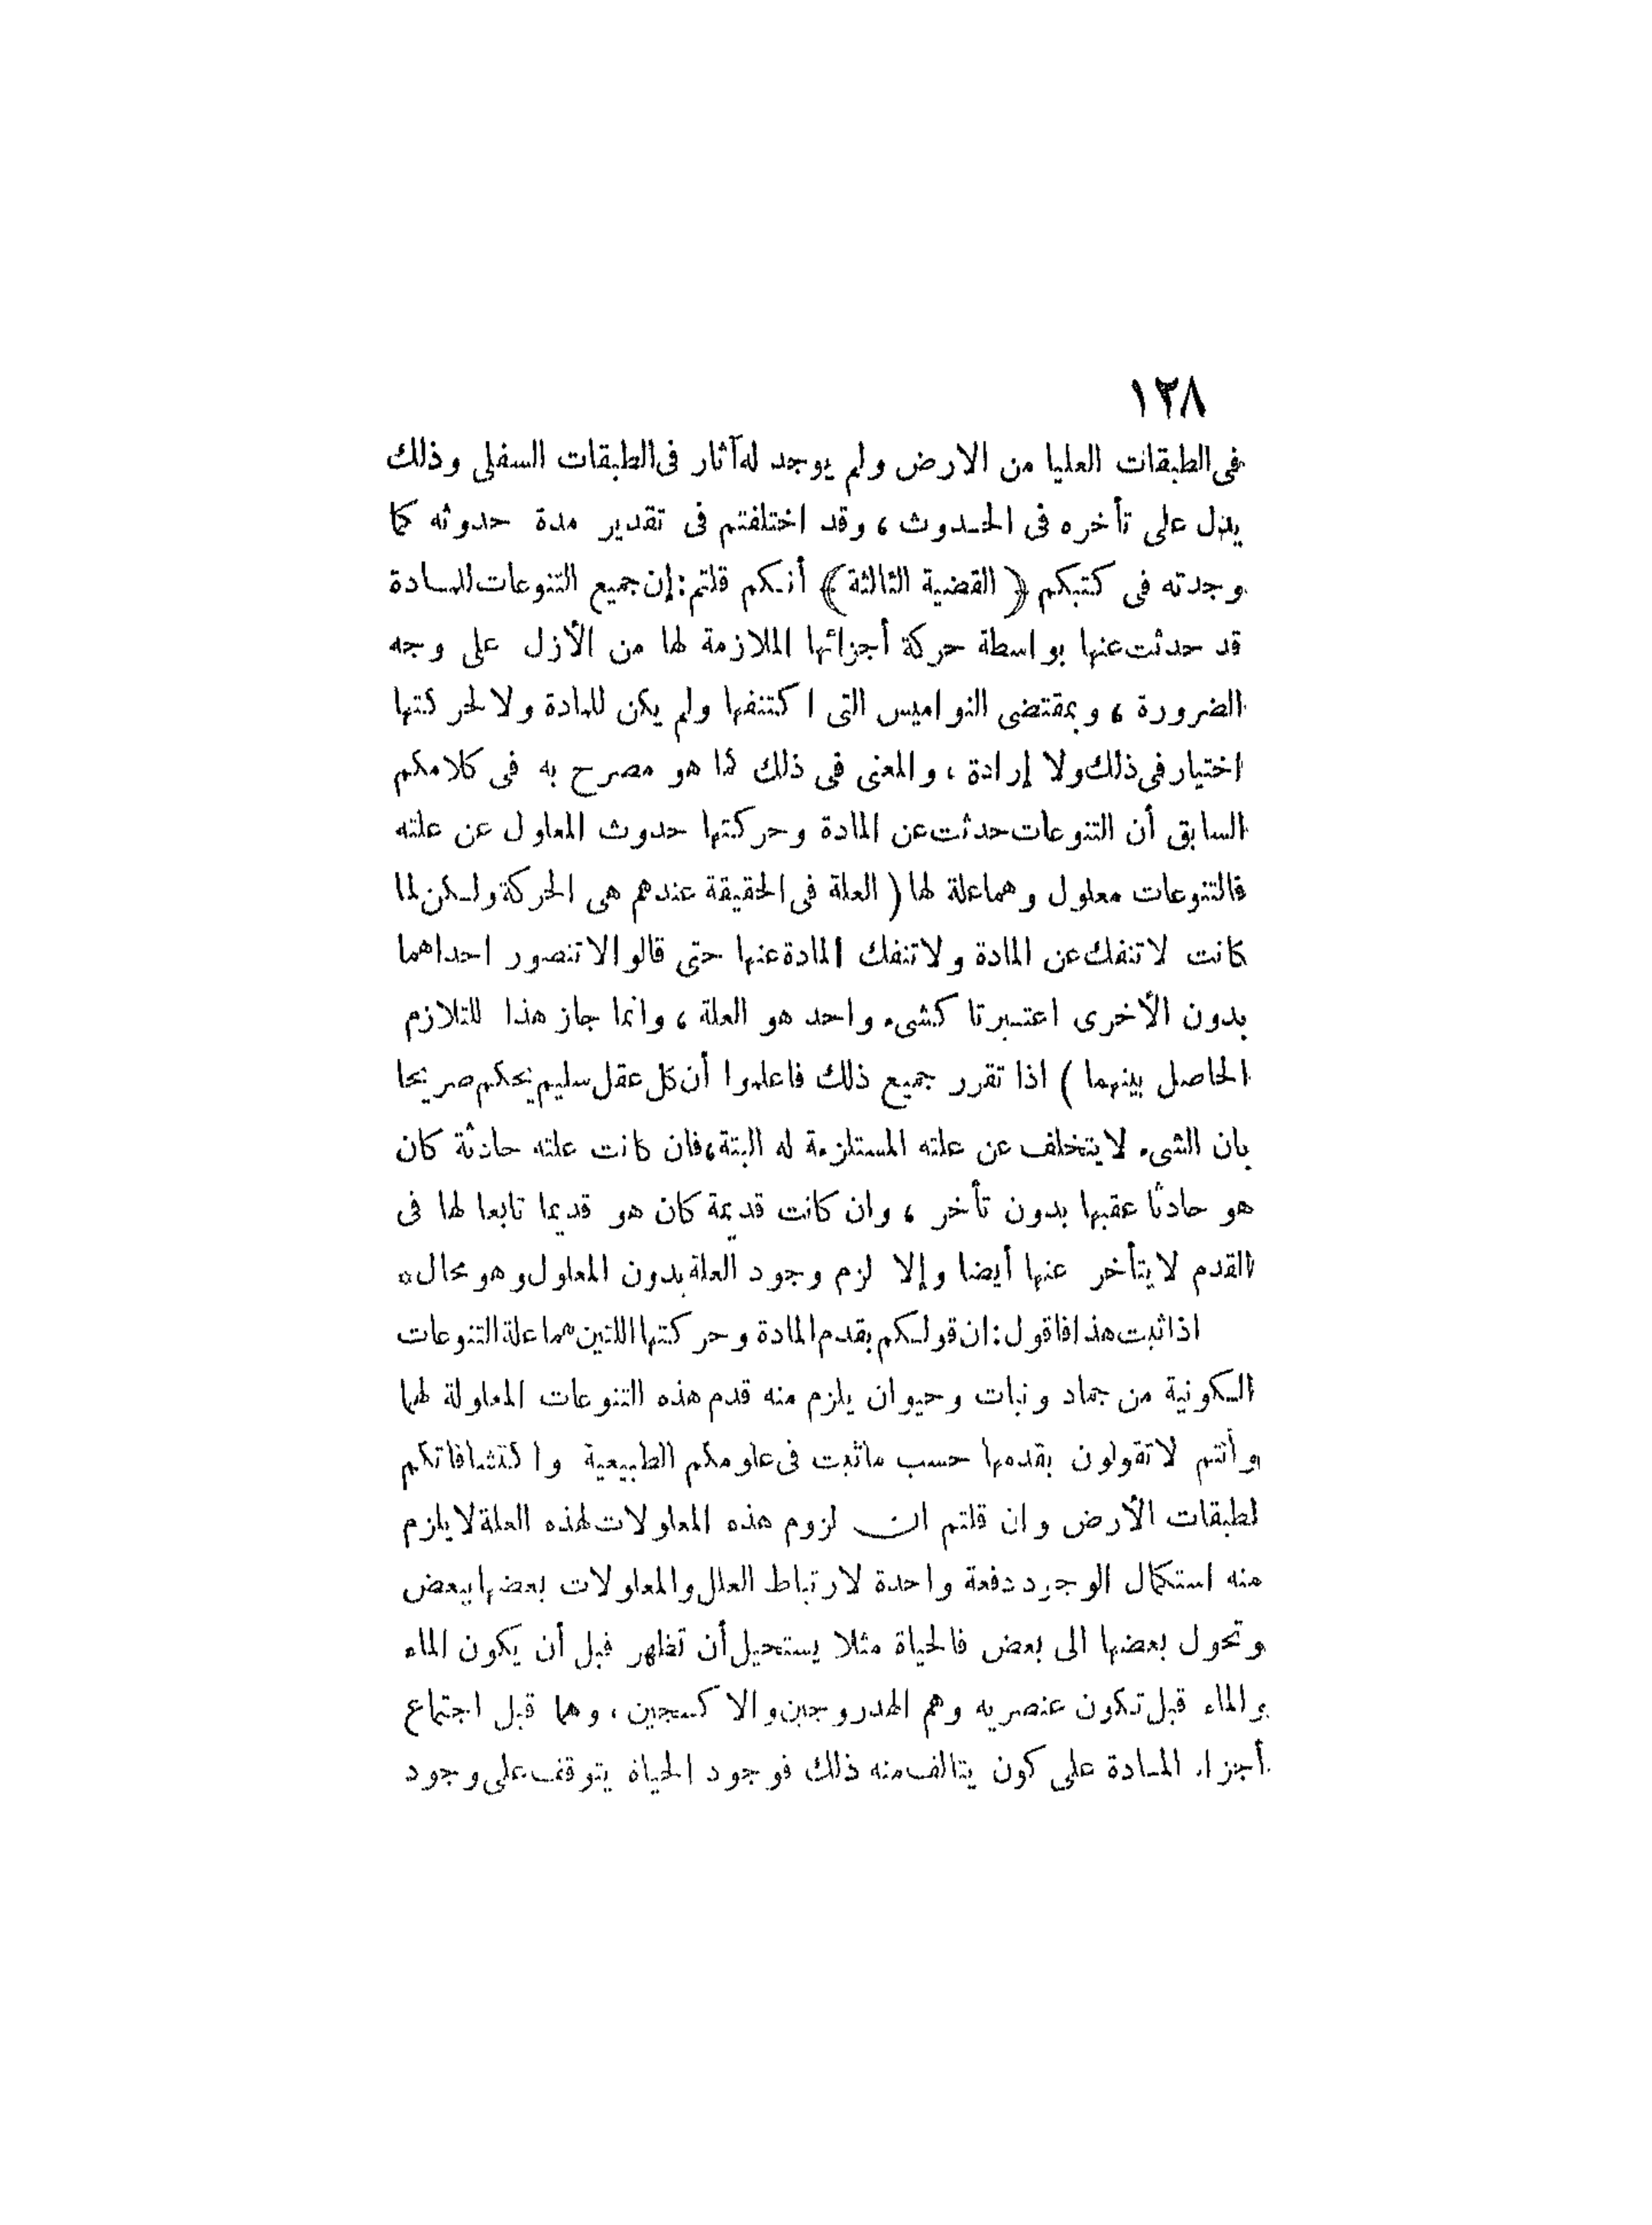 ١٣٨
فى الطبقات العليا من الارض ولم يوجد له آثار فى الطبقات السفلى وذلك
يدل على تأخره فى الحدوث ، وقد اختلفتم فى تقدير مدة حدوثه كما
وجدته فى كتبكم ﴿ القضية الثالثة ﴾ أنكم قلتم : إن جميع التنوعات للمادة
قد حدثت عنها بواسطة حركة أجزائها الملازمة لها من الأزل على وجه
الضرورة ، وبمقتضى النواميس التى اكتنفها ولم يكن للمادة ولا لحركتها
اختيار فى ذلك ولا إرادة ، والمعنى فى ذلك كما هو مصرح به فى كلامكم
السابق أن التنوعات حدثت عن المادة وحركتها حدوث المعلول عن علته
فالتنوعات معلول وهما علة لها ( العلة فى الحقيقة عندهم هى الحركة ولكن لما
كانت لا تنفك عن المادة ولا تنفك المادة عنها حتى قالوا لا تتصور احداهما
بدون الأخرى اعتبرتا كشىء واحد هو العلة ، وانما جاز هذا للتلازم
الحاصل بينهما ) اذا تقرر جميع ذلك فاعلموا أن كل عقل سليم يحكم صريحا
بان الشىء لا يتخلف عن علته المستلزمة له البتة ، فان كانت علته حادثة كان
هو حادثا عقبها بدون تأخر ، وان كانت قديمة كان هو قديما تابعا لها فى
القدم لا يتأخر عنها أيضا وإلا لزم وجود العلة بدون المعلول وهو محال ٥
اذا ثبت هذا فاقول : ان قولكم بقدم المادة وحركتها اللتين هما علة التنوعات
الكونية من جماد ونبات وحيوان يلزم منه قدم هذه التنوعات المعلولة لهما
وأنتم لا تقولون بقدمها حسب ماثبت فى علومكم الطبيعية واكتشافاتكم
لطبقات الأرض وان قلتم ان لزوم هذه المعلولات لهذه العلة لا يلزم
منه استكمال الوجود دفعة واحدة لارتباط العلل والمعلولات بعضها ببعض
وتحول بعضها الى بعض فالحياة مثلا يستحيل أن تظهر قبل أن يكون الماء
والماء قبل تكون عنصريه وهم الهدروجين والاكسجين ، وهما قبل اجتماع
أجزاء المادة على كون يتالف منه ذلك فوجود الحياة يتوقف على وجود